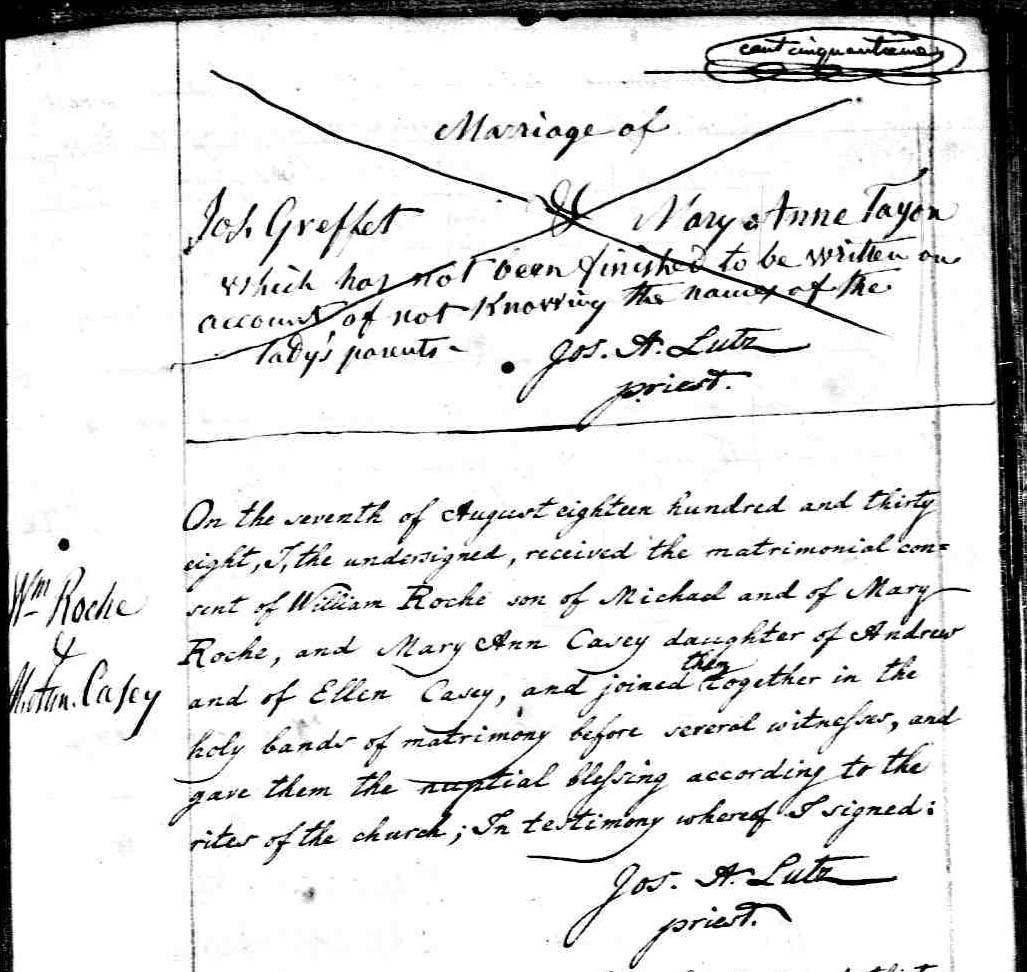 cent cinquantième
Marriage of
Jos. Greffet & Mary Anne Tayon
which has not been finished to be written on
account of not Knowing the names of the
lady's parents-
Jos. A. Lutz
priest.
On the seventh of August eighteen hundred and thirty
eight, I, the undersigned, received the matrimonial con=
sent of William Roche son of Michael and of Mary
Roche, and Mary Ann Casey daughter of Andrew
and of Ellen Casey, and joined them together in the
holy bands of matrimony before several witnesses, and
gave them the nuptial blessing according to the
rites of the church; In testimony whereof I signed:
Jos. A. Lutz
priest.
Wm Roche
&
M. Ann. Casey